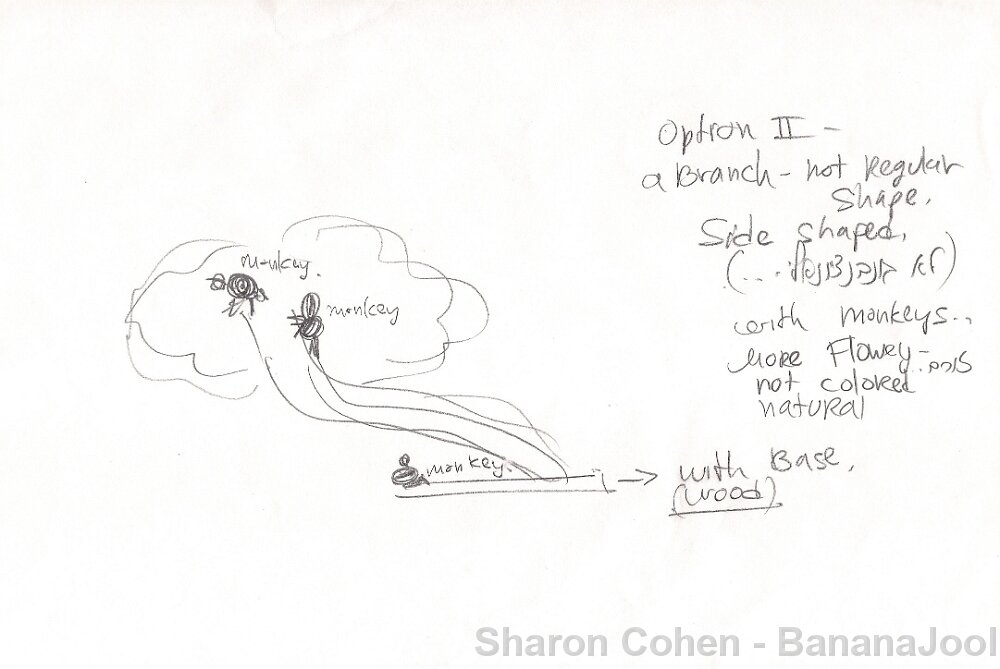 Option II -
a Branch - not Regular
Shape.
Side shaped.
(לא
with monkeys..
More Flowey - זורם
not colored
natural
with Base.
(wood)
monkey.
monkey
monkey.
Sharon Cohen - BananaJool